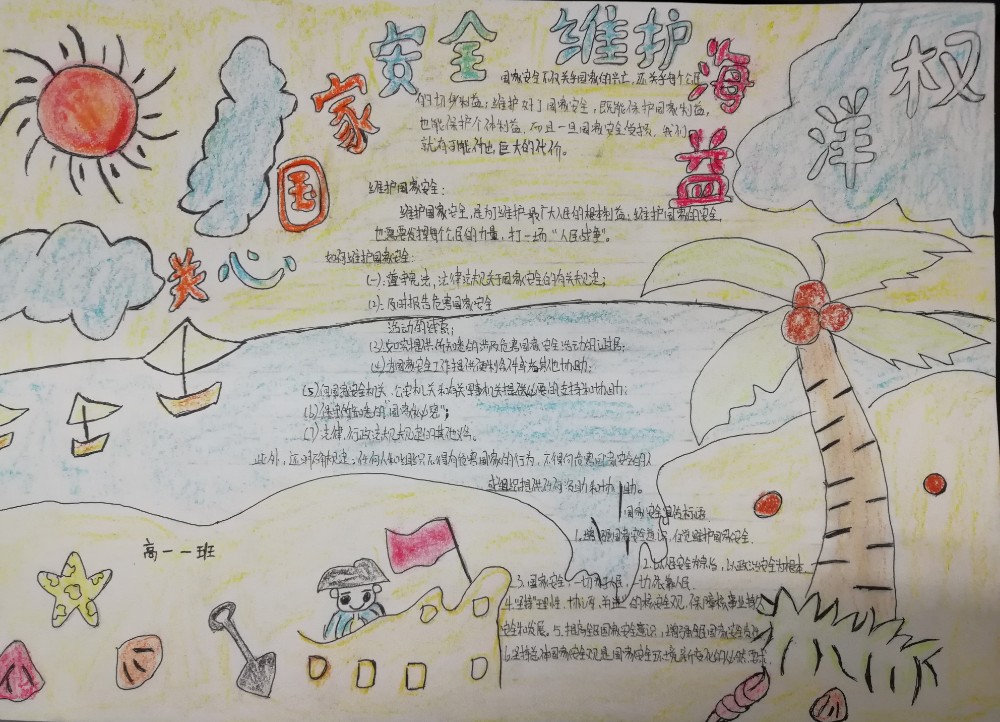 关心国家安全 维护海洋权益
国家安全不仅关乎国家的兴亡,还关乎每个公民
的切身利益;维护好了国家安全,既能保护国家利益,
也能保护个体利益,而且一旦国家安全受损,我们
就有可能付出巨大的代价。
维护国家安全:
维护国家安全,是为了维护最广大人民的根本利益;维护国家的安全,
也需要发挥每个公民的力量,打一场“人民战争”。
如何维护国家安全:
(一):遵守宪法,法律法规关于国家安全的有关规定;
(2):及时报告危害国家安全
活动的线索;
(3)如实提供所知悉的涉及危害国家安全活动的证据;
(4)为国家安全工作提供便利条件或者其他协助;
(5)向国家安全机关、公安机关和有关军事机关提供必要的支持和协助;
(6)保守所知悉的“国家秘密”;
(7)法律,行政法规规定的其他义务。
此外,还明确规定:任何人和组织不得为危害国家的行为,不得向危害国家安全的人
或组织提供任何资助和协助。
国家安全宣传标语
1.增强国家安全意识,自觉维护国家安全
2.以人民安全为宗旨,以政治安全为根本
3.国家安全,一切为了人民,一切依靠人民
4.坚持“理性、协调、并进”的核安全观,保障核事业持久
安全和发展。5.提高全民国家安全意识,增强全民国家安全
6.坚持总体国家安全观是国家安全环境具有变化的必然要求
高一一班